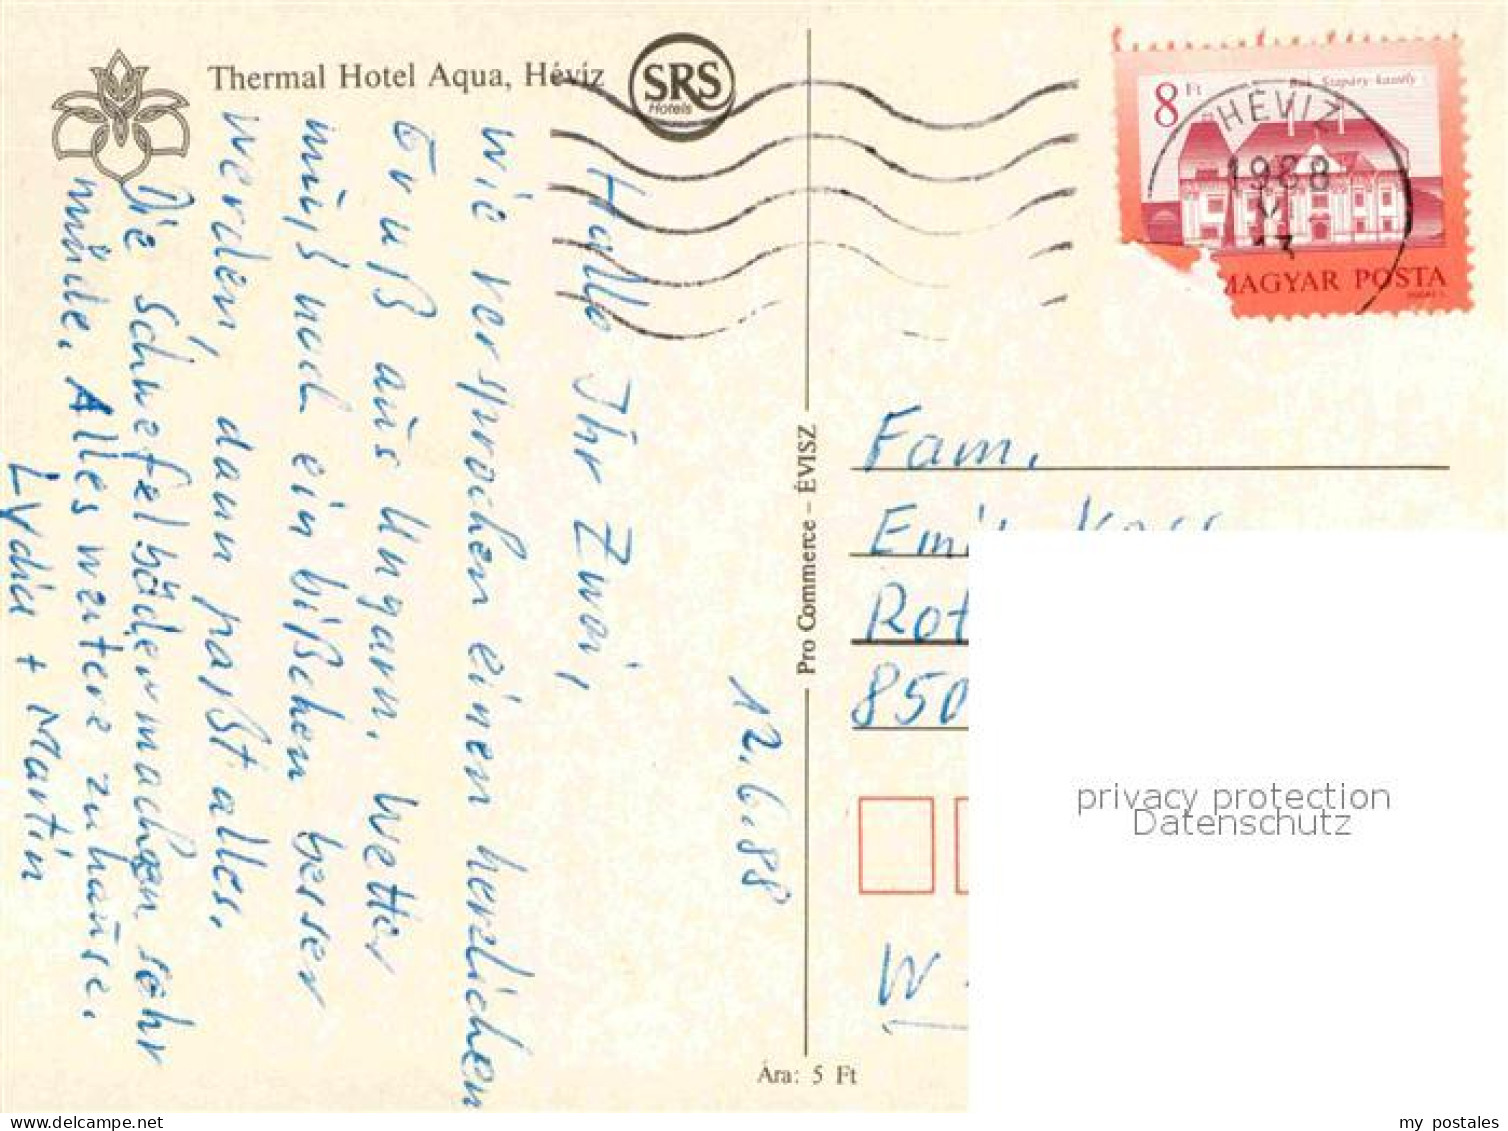 Thermal Hotel Aqua, Héviz
SRS
Hotels
8 Ft
Bük Szapáry-kastély
HÉVÍZ
1988
VI
13
MAGYAR POSTA
12.6.88
Hallo Ihr Zwei,
wie versprochen einen herzlichen
Gruß aus Ungarn. Wetter
muß noch ein bißchen besser
werden, dann paßt alles.
Die Schwefelbäder machen sehr
müde. Alles weitere zuhause.
Lydia + Martin
Pro Commerce – ÉVISZ
Fam.
Emil
Rot
850
W
Ára: 5 Ft
privacy protection
Datenschutz
my postales